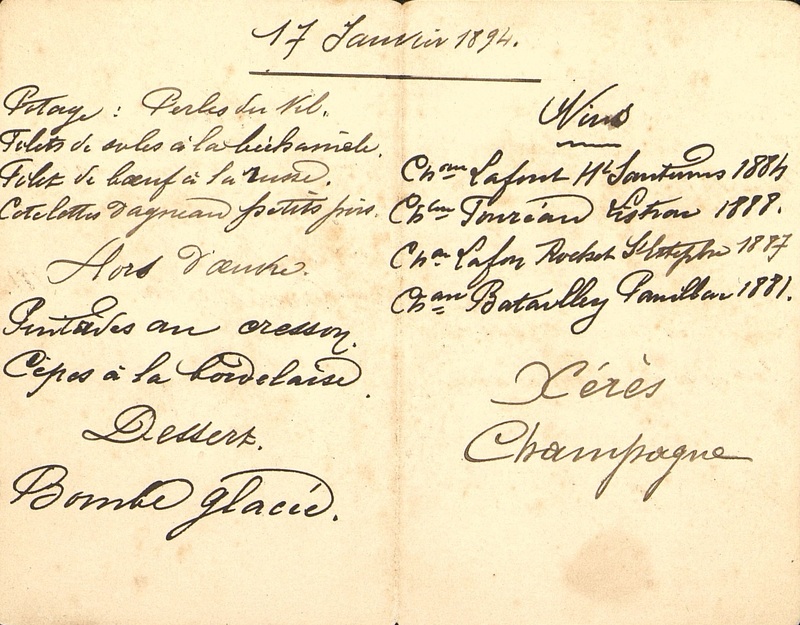 17 Janvier 1894.
Potage : Perles du Nil.
Filets de soles à la béchamele.
Filet de bœuf à la russe.
Cotelettes d'agneau petits pois.
Hors d'œuvre.
Pintades au cresson.
Cèpes à la bordelaise.
Dessert.
Bombe glacée.
Vins
Cheau Lafont Ht Sauternes 1884
Cheau Touréau Listrac 1888.
Cheau Lafon Rochet St Estèphe 1887
Cheau Batailley Pauillac 1881.
Xérès
Champagne